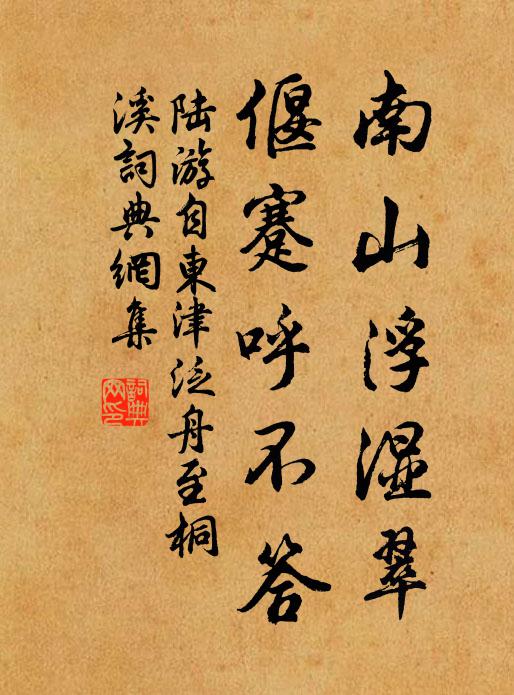 南山浮湿翠
偃蹇呼不答
陆游自東津泛舟至桐
溪詞典網集
詞典
網印